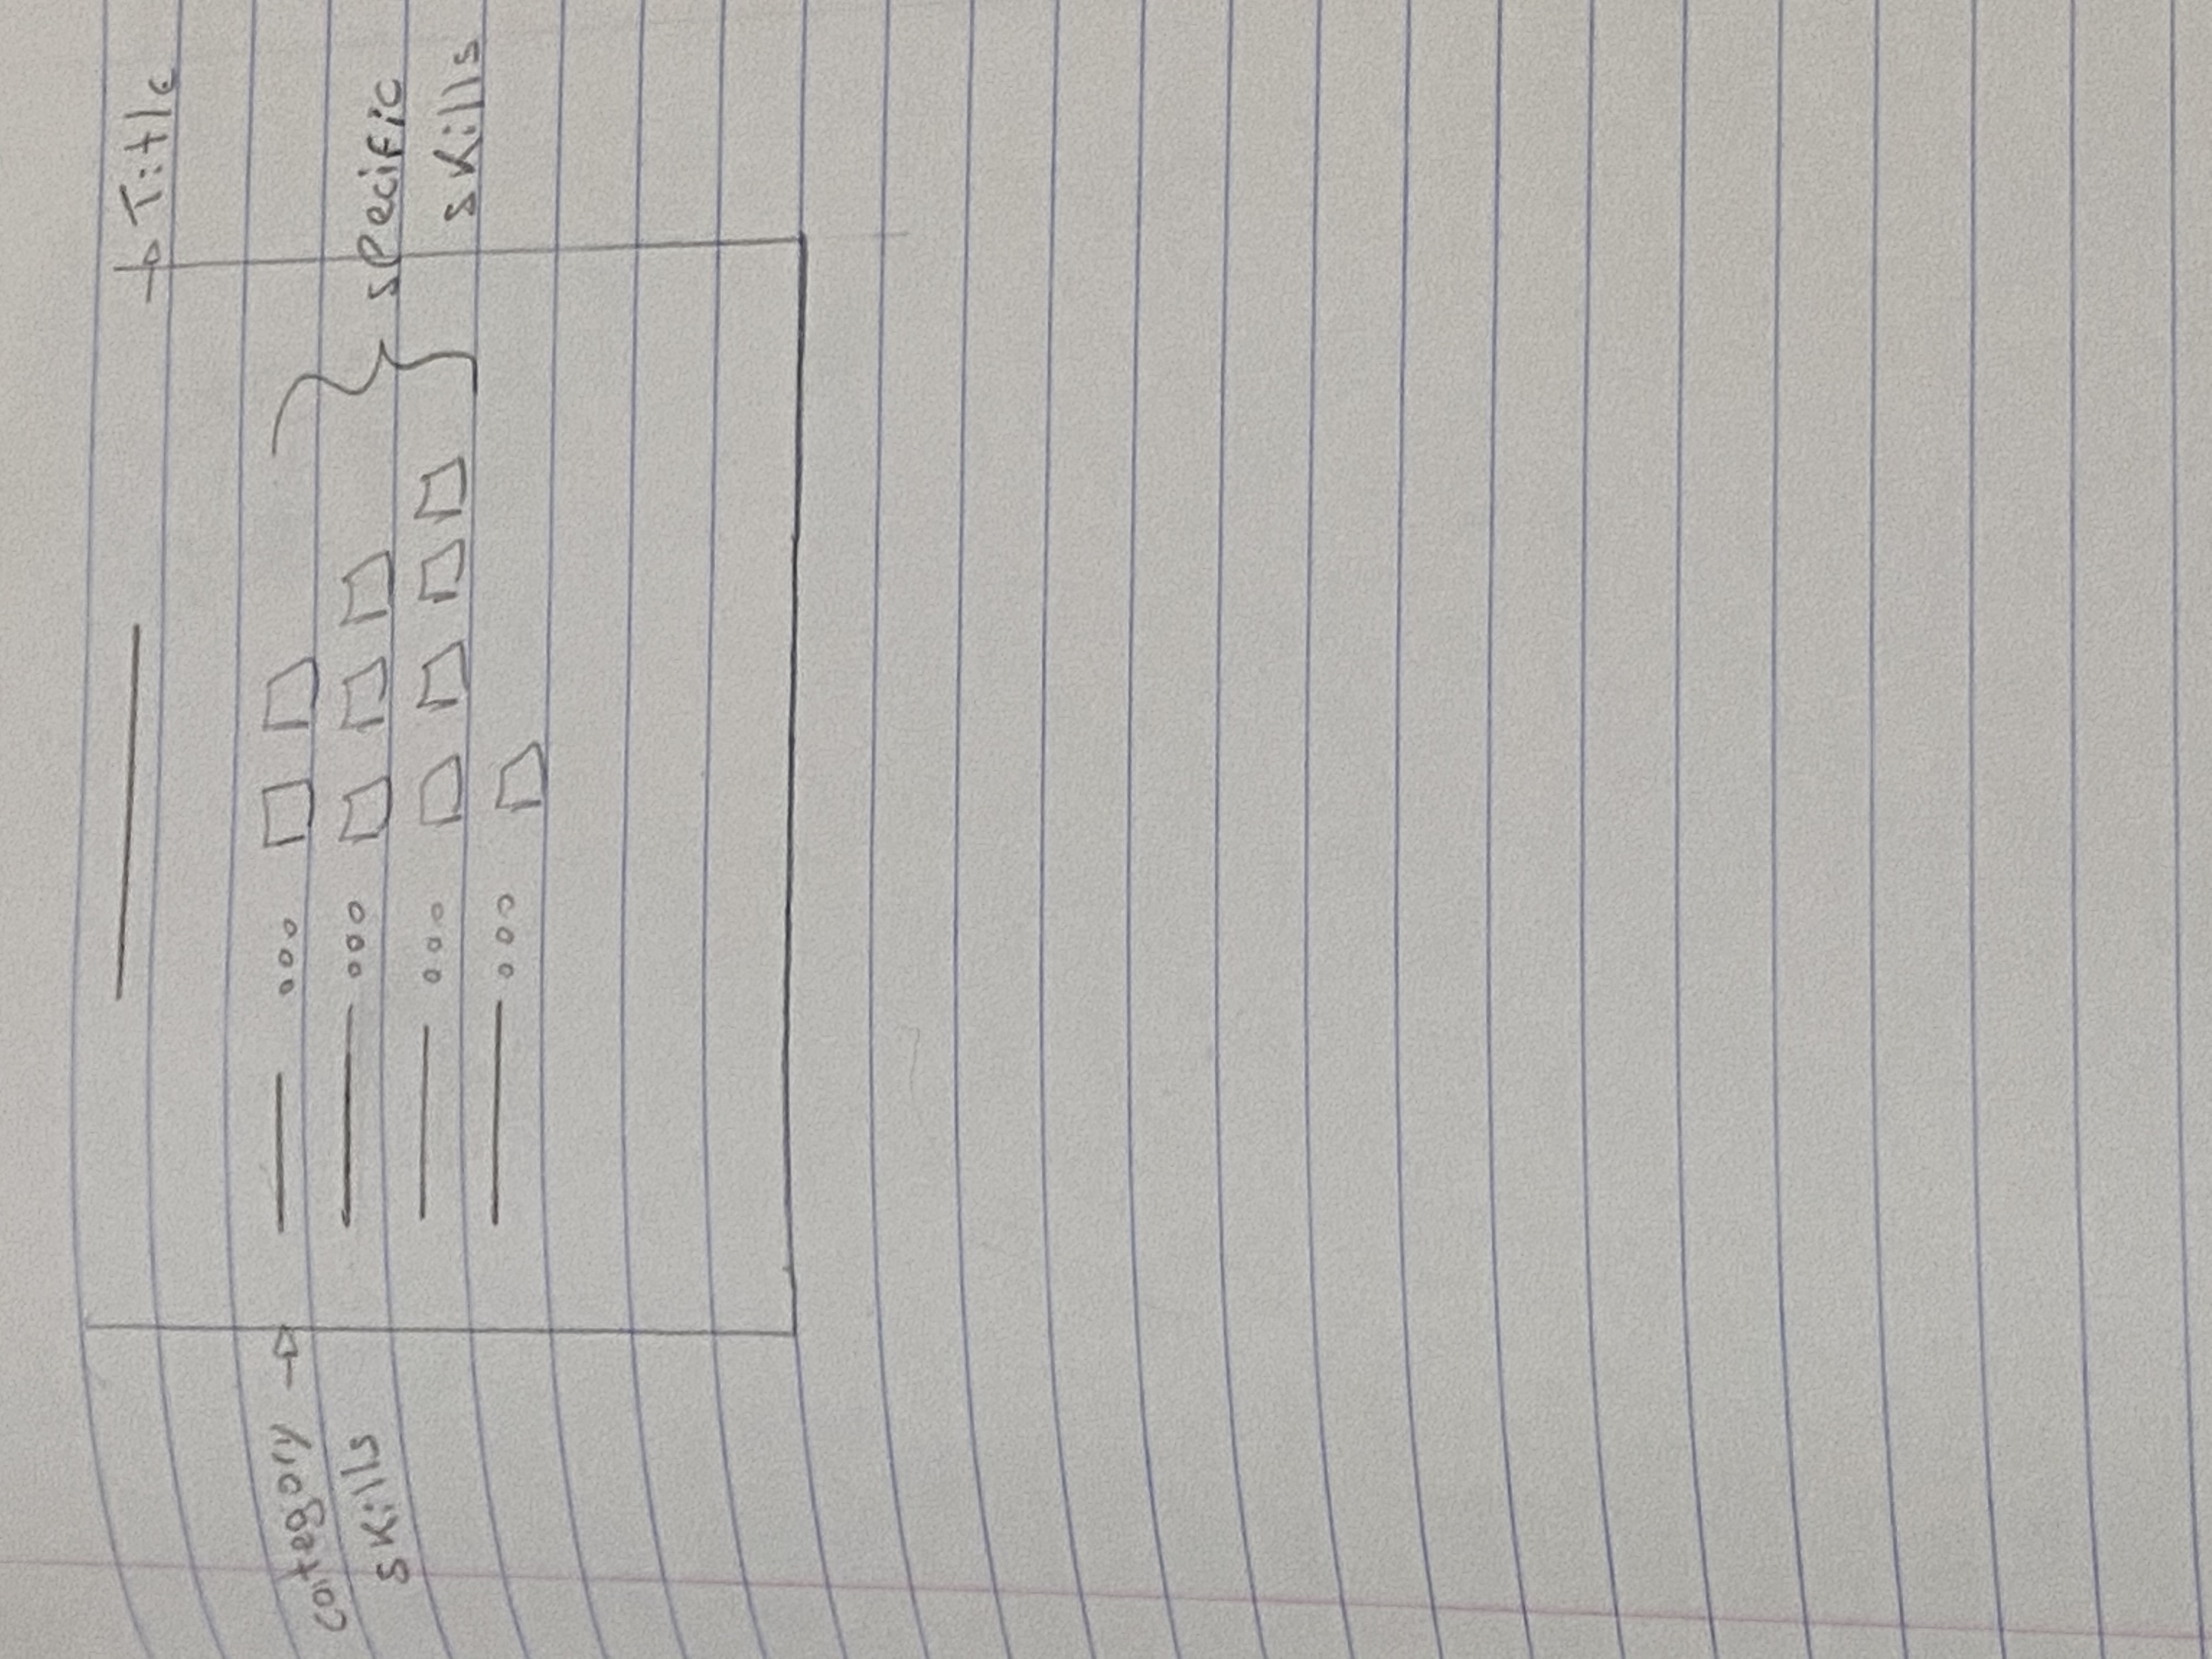 Title
category
skills
specific
skills